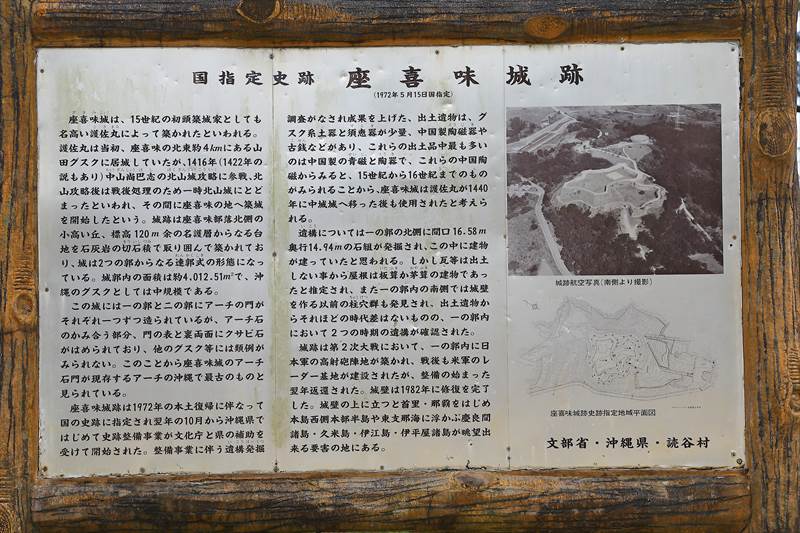 国指定史跡 座喜味城跡
(1972年5月15日国指定)
座喜味城は、15世紀の初頭築城家としても
名高い護佐丸によって築かれたといわれる。
護佐丸は当初、座喜味の北東約4kmにある山
田グスクに居城していたが、1416年(1422年の
説もあり)中山尚巴志の北山城攻略に参戦、北
山攻略後は戦後処理のため一時北山城にとど
まったといわれ、その間に座喜味の地へ築城
を開始したという。城跡は座喜味部落北側の
小高い丘、標高120m余の名護層からなる台
地を石灰岩の切石積で取り囲んで築かれてお
り、城は2つの郭からなる連郭式の形態になっ
ている。城郭内の面積は約4.012.51㎡で、沖
縄のグスクとしては中規模である。
この城には一の郭と二の郭にアーチの門が
それぞれ一つずつ造られているが、アーチ石
のかみ合う部分、門の表と裏両面にクサビ石
がはめられており、他のグスク等には類例が
みられない。このことから座喜味城のアーチ
石門が現存するアーチの沖縄で最古のものと
見られている。
座喜味城跡は1972年の本土復帰に伴なって
国の史跡に指定され翌年の10月から沖縄県で
はじめて史跡整備事業が文化庁と県の補助を
受けて開始された。整備事業に伴う遺構発掘
調査がなされ成果を上げた。出土遺物は、グ
スク系土器と須恵器が少量、中国製陶磁器や
古銭などがあり、これらの出土品中最も多い
のは中国製の青磁と陶器で、これらの中国陶
磁からみると、15世紀から16世紀までのもの
がみられることから、座喜味城は護佐丸が1440
年に中城城へ移った後も使用されたと考えら
れる。
遺構については一の郭の北側に間口16.58m
奥行14.94mの石組が発掘され、この中に建物
が建っていたと思われる。しかし瓦等は出土
しない事から屋根は板葺か茅葺の建物であっ
たと推定され、また一の郭内の南側では城壁
を作る以前の柱穴群も発見され、出土遺物か
らそれほどの時代差はないものの、一の郭内
において2つの時期の遺構が確認された。
城跡は第2次大戦において、一の郭内に日
本軍の高射砲陣地が築かれ、戦後も米軍のレ
ーダー基地が建設されたが、整備の始まった
翌年返還された。城壁は1982年に修復を完了
した。城壁の上に立つと首里・那覇をはじめ
本島西側本部半島や東支那海に浮かぶ慶良間
諸島・久米島・伊江島・伊平屋諸島が眺望出
来る要害の地にある。
城跡航空写真(南側より撮影)
座喜味城跡史跡指定地域平面図
文部省・沖縄県・読谷村